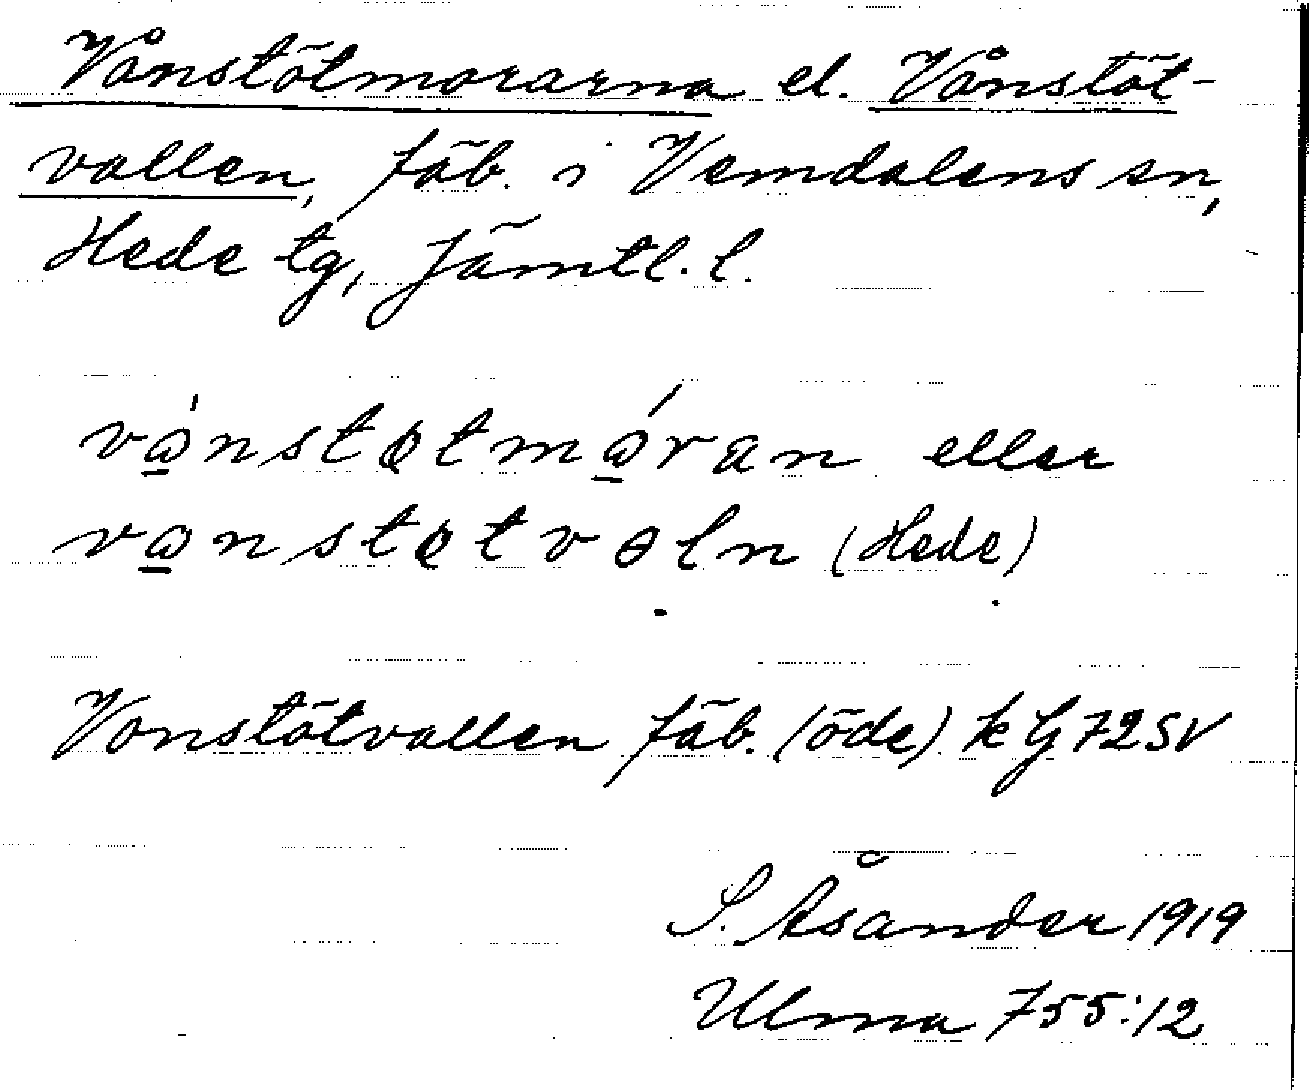 Vånstötmorarna el. Vånstöt-
vallen, fäb. i Vemdalens sn,
Hede tg, Jämtl. l.
vånstøtmåran eller
vånstøtvɵln (Hede)
Vonstötvallen fäb. (öde) k G 72 SV
S. Åsander 1919
Ulma 755:12